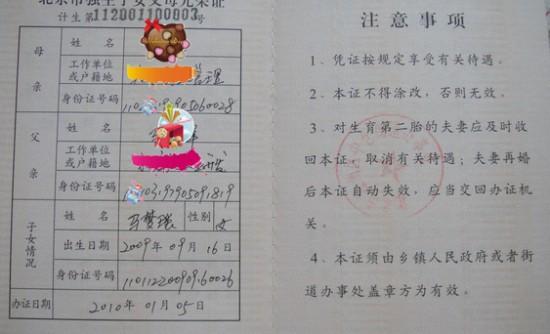 北京市独生子女父母光荣证
计生第112001100003号
母亲
姓名
工作单位
或户籍地
身份证号码
父亲
姓名
工作单位
或户籍地
身份证号码
子女情况
姓名 性别 女
出生日期 2009年09月16日
身份证号码 110112200909160026
办证日期 2010年01月05日
注意事项
1、凭证按规定享受有关待遇。
2、本证不得涂改，否则无效。
3、对生育第二胎的夫妻应及时收
回本证，取消有关待遇；夫妻再婚
后本证自动失效，应当交回办证机
关。
4、本证须由乡镇人民政府或者街
道办事处盖章方为有效。